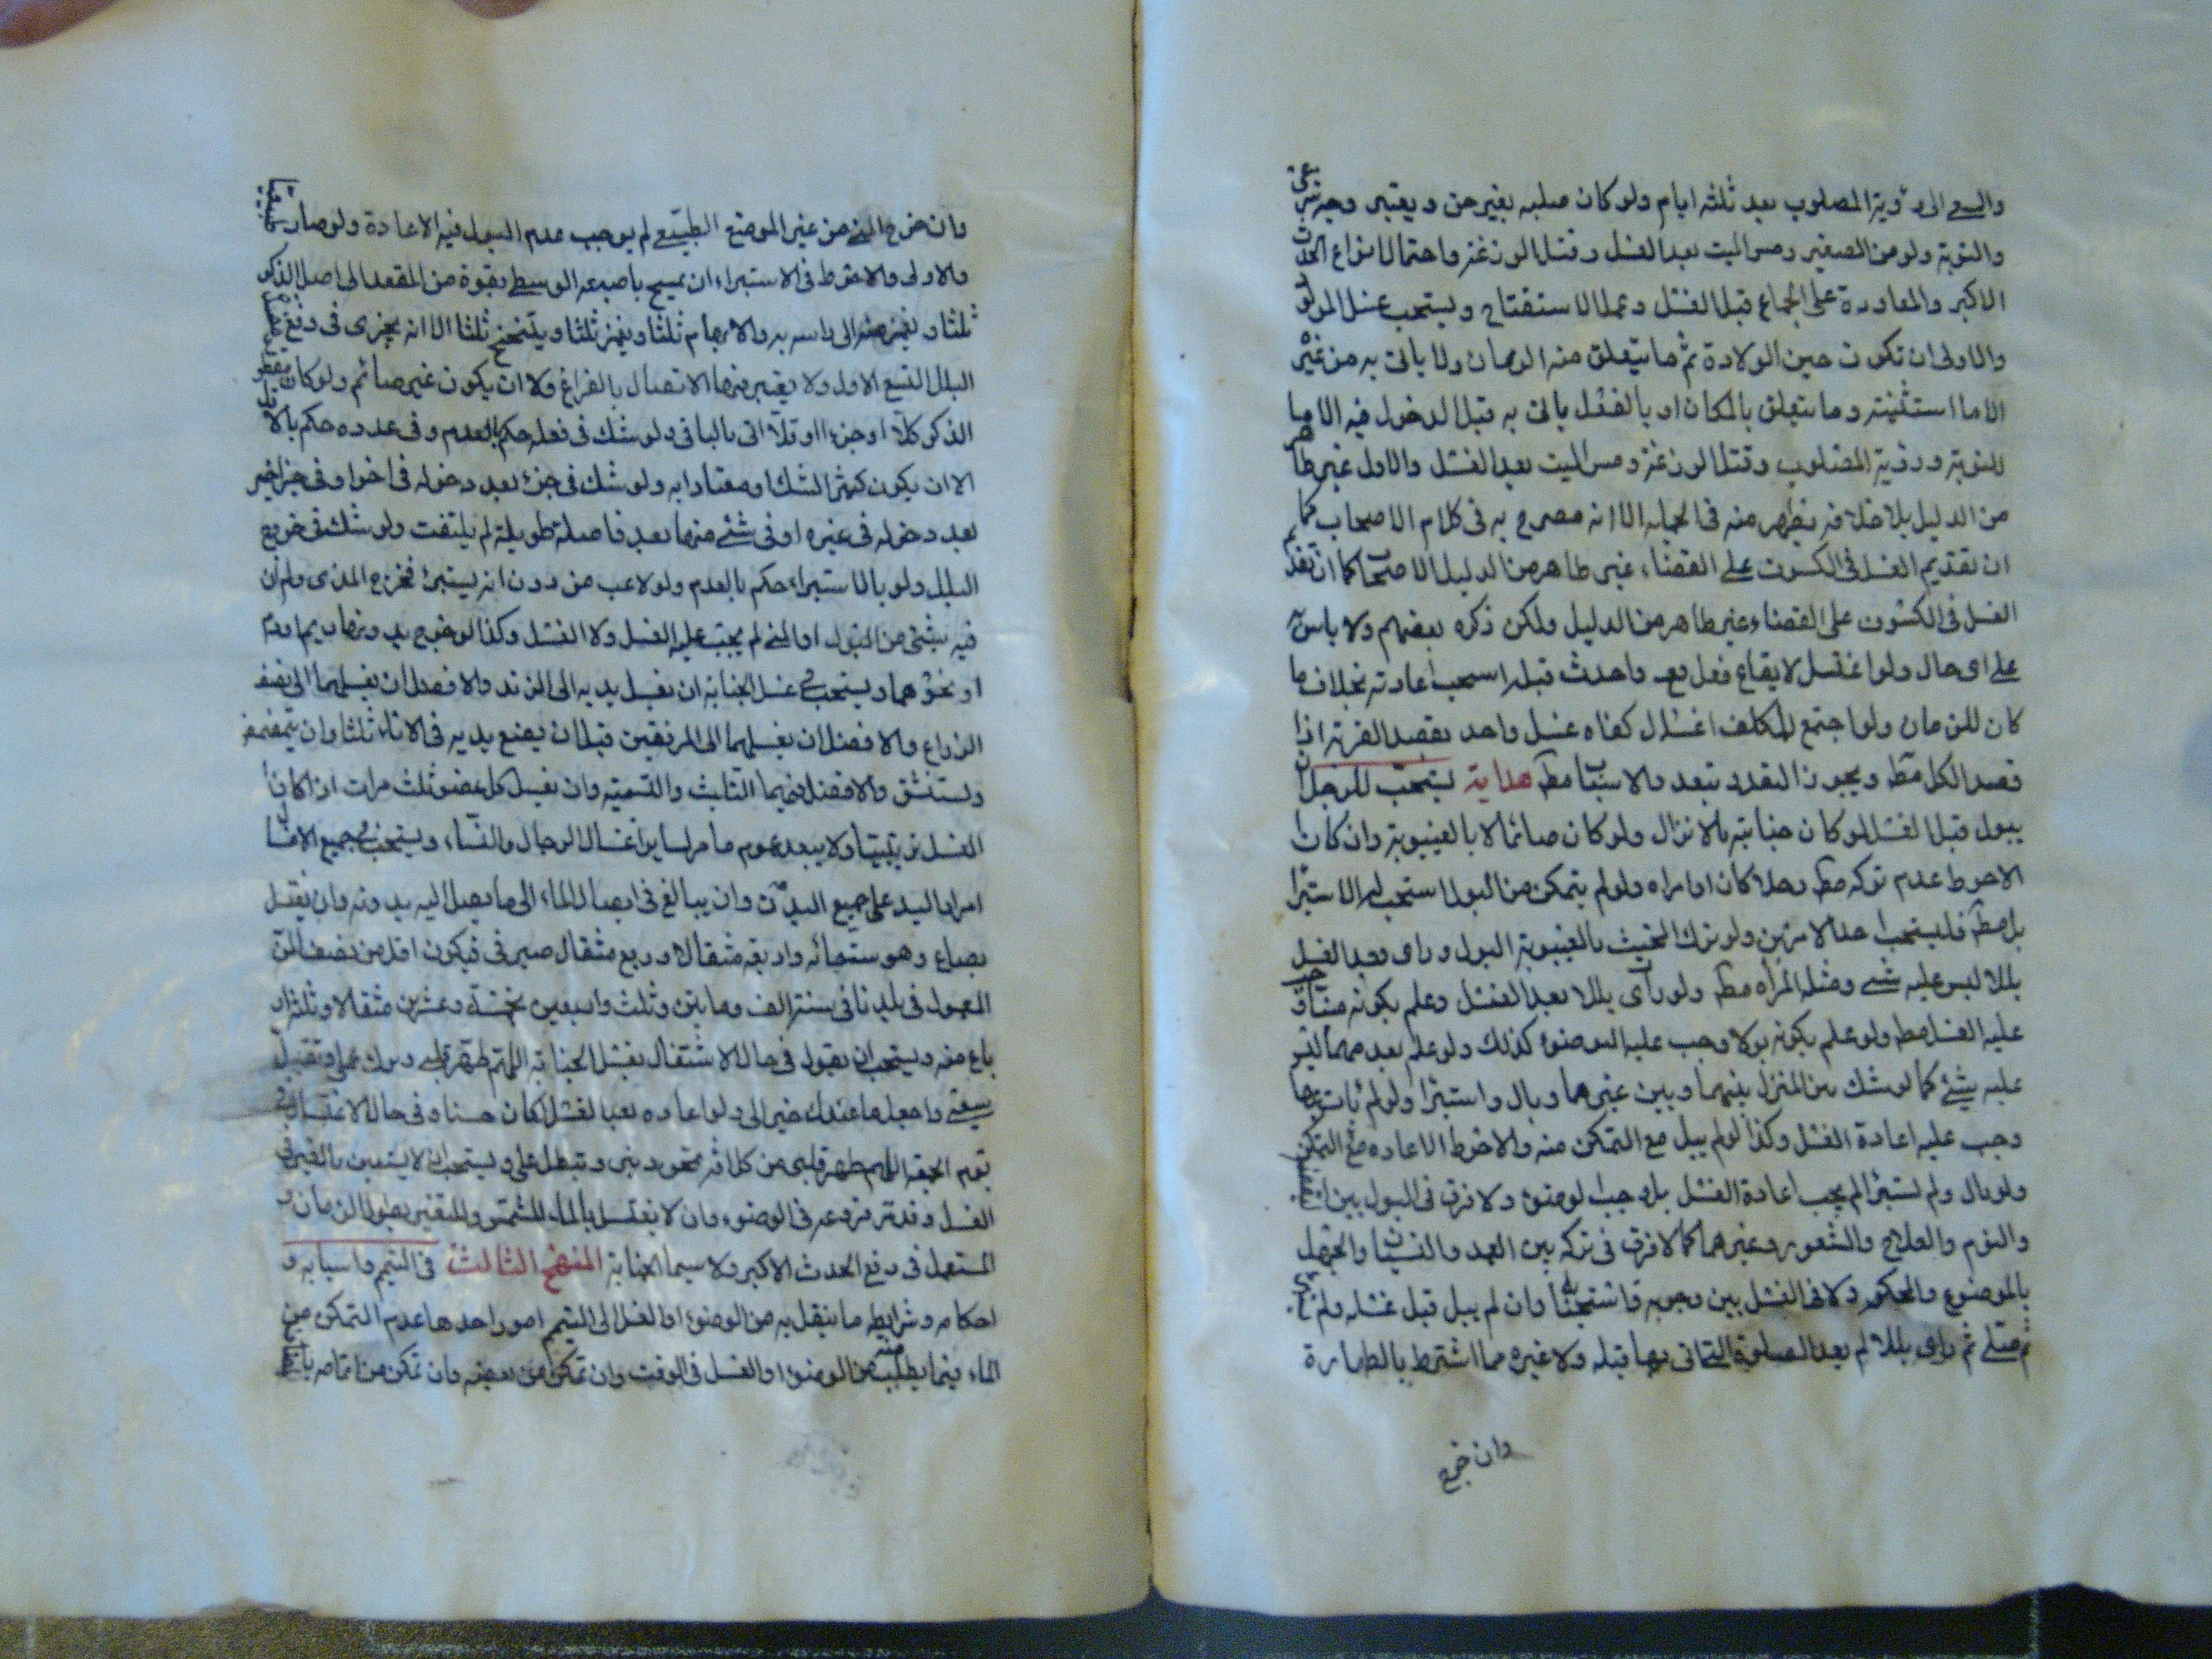 والسعى الى رؤية المصلوب بعد ثلثه ايام ولو كان صلبه بغير حق ويعتبر
والتوبة ولو من الصغير ومس الميت بعد الغسل وقتل الوزغ واحتمال انواع الحدث
الاكبر والمعاودة على الجماع قبل الغسل وعمل الاستفتاح ويستحب غسل المولود
والاولى ان تكون حين الولادة ثم ما يتعلق منه الزمان ولا ياتى به من غير
الا ما استثنيته وما يتعلق بالمكان او بالفعل ياتى به قبل الدخول فيه الا ما
للتوبة ورؤية المصلوب وقتل الوزغ ومس الميت بعد الغسل والاول غير ظاهر
من الدليل بل خلافه يظهر منه فى الجمله الا انه مصرح به فى كلام الاصحاب كما
ان تقديم الغسل فى الكسوف على القضاء غير ظاهر من الدليل
الغسل فى الكسوف على القضاء غير ظاهر من الدليل ولكن ذكره بعضهم ولا باس
على اى حال ولو اغتسل لايقاع فعل واحدث قبله استحب اعادته بخلاف ما
كان للزمان ولو اجتمع للمكلف اغسال كفاه غسل واحد بقصد القربة اذا
قصد الكل مط ويجوز التعدد بتعدد الاسباب مط هداية يستحب للرجل ان
يبول قبل الغسل لو كان جنابته بالانزال ولو كان صائما لا بالغيبوبة وان كان
الاحوط عدم تركه مط رجلا كان او امراه ولو لم يتمكن من البول استحب له الاستبراء
بل مط فليستحب احد الامرين ولو ترك المجنب بالغيبوبة البول وراى بعد الغسل
بللا ليس عليه شىء ومثله المراه مط ولو راى بللا بعد الغسل وعلم بكونه منيا وجب
عليه الغسل مط ولو علم بكونه بولا وجب عليه الوضوء كذلك ولو علم بعدمهما ليس
عليه شىء كما لو شك من المنزل بينهما وبين غيرهما وبال واستبرا ولو لم يات بهما
وجب عليه اعادة الغسل وكذا لو لم يبل مع التمكن منه والاحوط الاعاده مع التمكن
ولو بال ولم يستبرا لم يجب اعادة الغسل بل وجب الوضوء ولا فرق فى البول بين
والنوم والعلاج والشعور وغيرهما كما لا فرق فى تركه بين العمد والنسيان والجهل
بالموضوع والحكم ولا فى الغسل بين وجوبه واستحبابه وان لم يبل قبل غسله ولم
ثم صلى ثم راى بللا لم يعد الصلوة التى اتى بها قبله ولا غيره مما اشترط بالطهارة
وان خرج
وان خرج المنى من غير الموضع الطبيعى لم يوجب عدم البول فيه الاعادة ولو صار
والاولى والاحوط فى الاستبراء ان يمسح باصبعه الوسطى بقوة من المقعد الى اصل الذكر
ثلثا ويغمز منه الى راسه به والابهام ثلثا ويغمز ثلثا ويتنحنح ثلثا الا انه يجزى فى رفع
البلل التسع الاول ولا يعتبر فيها الاتصال بالفراغ ولا ان يكون غير صائم ولو كان مقطوع
الذكر كلا او جزءا او قلا اتى بالباقى ولو شك فى فعله حكم بالعدم وفى عدده حكم بالاقل
الا ان يكون كثير الشك او معتادا به ولو شك فى جزء بعد دخوله فى اخر او فى جزء اخير
بعد دخوله فى غيره او فى شىء منها بعد فاصلة طويلة لم يلتفت ولو شك فى خروج
البلل ولو بالاستبراء حكم بالعدم ولو لاعب من دون ان يستبرئ فخرج المذى ولم يكن
فيه شىء من البول او المنى لم يجب عليه الغسل ولا الغسل وكذا لو خرج
او نحوهما ويستحب فى غسل الجنابة ان يغسل يديه الى الزند والافضل ان يغسلهما الى نصف
الذراع والافضل ان يغسلهما الى المرفقين قبل ان يضع يديه فى الاناء ثلثا وان يتمضمض
ويستنشق والافضل فيهما التثليث والتسمية وان يغسل كل عضو ثلث مرات اذا كان
الغسل ترتيبيا ولا يبعد عموم ما مر لساير اغسال الرجال والنساء ويستحب فى جميع الاغسال
امرار اليد على جميع البدن وان يبالغ فى ايصال الماء الى ما يصل اليه بدونه وان يغتسل
بصاع وهو ستمائه واربعه مثقالا وربع مثقال صيرفى فيكون اقل من نصف المن
المعمول فى بلدنا فى سنة الف ومايتين وثلث واربعين بخمسة وعشرين مثقالا وثلثة ار
باع منه ويستحب ان يقول فى حال الاشتغال بغسل الجنابة اللهم طهر قلبى وزك عملى وتقبل
سعيى واجعل ما عندك خيرا لى ولو اعاده بعد الغسل كان حسنا وفى حال الاغتسال
يوم الجمعة اللهم طهر قلبى من كل افة تمحق دينى وتبطل عملى ويستحب ان لا يستعين بالغير فى
الغسل وقد مر فروعه فى الوضوء وان لا يغتسل بالماء المشمس والمتغير بطول الزمان و
المستعمل فى رفع الحدث الاكبر ولا سيما الجنابة المنهج الثالث فى التيمم واسبابه و
احكامه وشرايطه ما ينقل به من الوضوء او الغسل الى التيمم امور احدها عدم التمكن من
الماء فيما يطلب من الوضوء او الغسل فى الوقت وان تمكن من بعضه وان تمكن من اتمامه